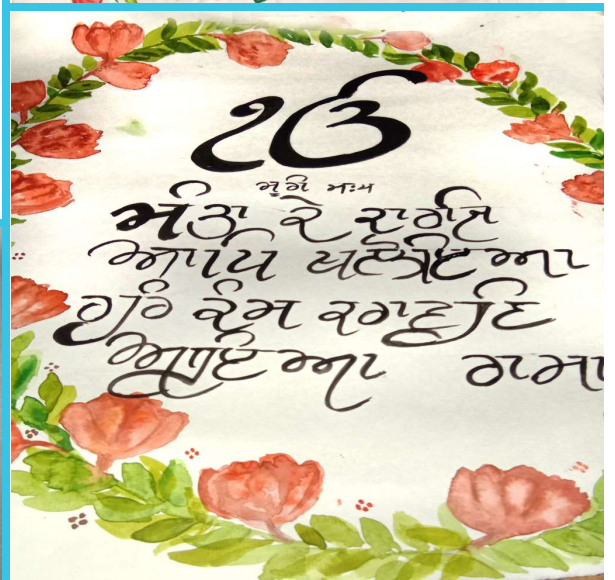 ੴ
ਸੂਹੀ ਮਃ ੫
ਸੰਤਾ ਕੇ ਕਾਰਜਿ
ਆਪਿ ਖਲੋਇਆ
ਹਰਿ ਕੰਮ ਕਰਾਵਣਿ
ਆਇਆ ਰਾਮ